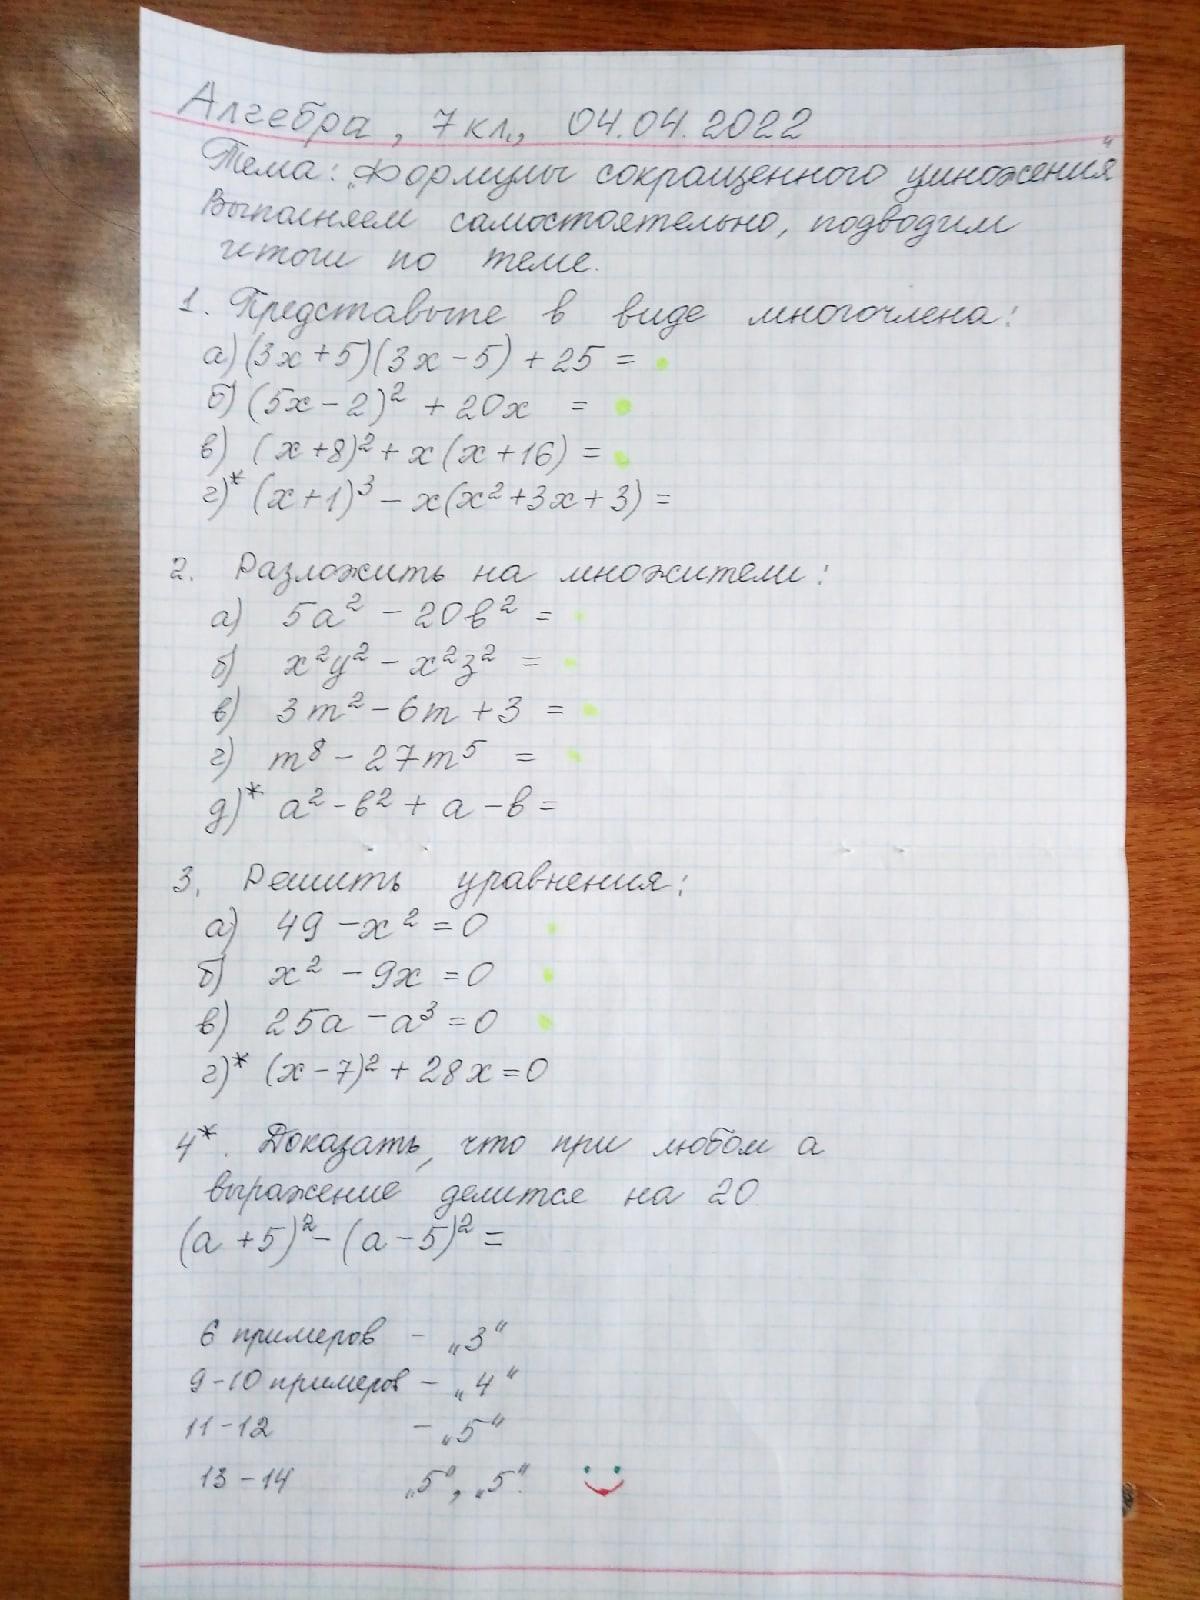 Алгебра, 7 кл., 04.04.2022
Тема: „Формулы сокращенного умножения"
Выполняем самостоятельно, подводим
итоги по теме.
1. Представьте в виде многочлена:
а) (3x+5)(3x-5)+25 =
б) (5x-2)² + 20x =
в) (x+8)² + x(x+16) =
г)* (x+1)³ - x(x²+3x+3) =
2. Разложить на множители:
а) 5a² - 20в² =
б) x²y² - x²z² =
в) 3m² - 6m + 3 =
г) m⁸ - 27m⁵ =
д)* a² - в² + a - в =
3. Решить уравнения:
а) 49 - x² = 0
б) x² - 9x = 0
в) 25a - a³ = 0
г)* (x-7)² + 28x = 0
4*. Доказать, что при любом a
выражение делится на 20
(a+5)² - (a-5)² =
6 примеров - „3"
9-10 примеров - „4"
11-12 - „5"
13-14 „5", „5".